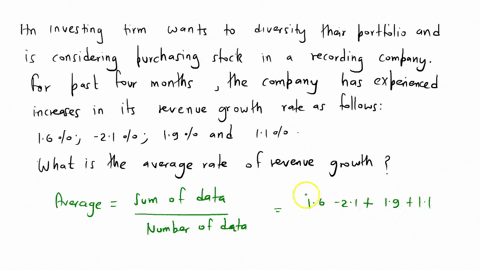 An investing firm wants to diversity thair portfolio and
is considering purchasing stock in a recording company.
For past four months, the company has experienced
increases in its revenue growth rate as follows:
1.6 %; -2.1 %; 1.9 % and 1.1 %.
What is the average rate of revenue growth?
Average = Sum of data / Number of data = 1.6 -2.1 + 1.9 + 1.1